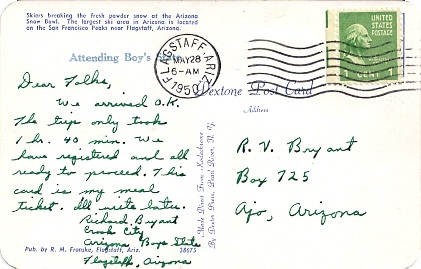 Skiers breaking the fresh powder snow at the Arizona
Snow Bowl. The largest ski area in Arizona is located
on the San Francisco Peaks near Flagstaff, Arizona.
Attending Boy's State
Dear Folks,
We arrived O.K.
The trip only took
1 hr. 40 min. We
have registered and all
ready to proceed. This
card is my meal
ticket. Ill write later.
Richard Bryant
Crook City
Arizona Boys State
Flagstaff, Arizona
Pub. by R. M. Fronske, Flagstaff, Ariz.
38675
Made Direct From Kodachrome
By Dexter Press, Pearl River, N. Y.
FLAGSTAFF, ARIZ.
MAY 28
6-AM
1950
UNITED
STATES
POSTAGE
1 CENT 1
Dextone Post Card
Address
R. V. Bryant
Box 725
Ajo, Arizona